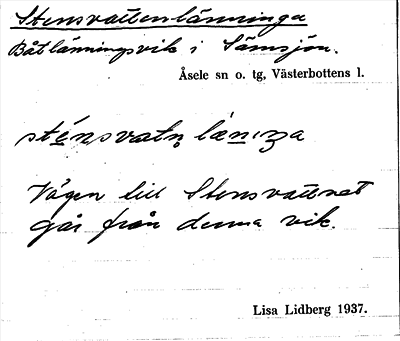 Stensvattenlänninga
Båtlänningsvik i Sämsjön.
Åsele sn o. tg, Västerbottens l.
sténsvatn län:za
Vägen till Stensvattnet
går från denna vik.
Lisa Lidberg 1937.